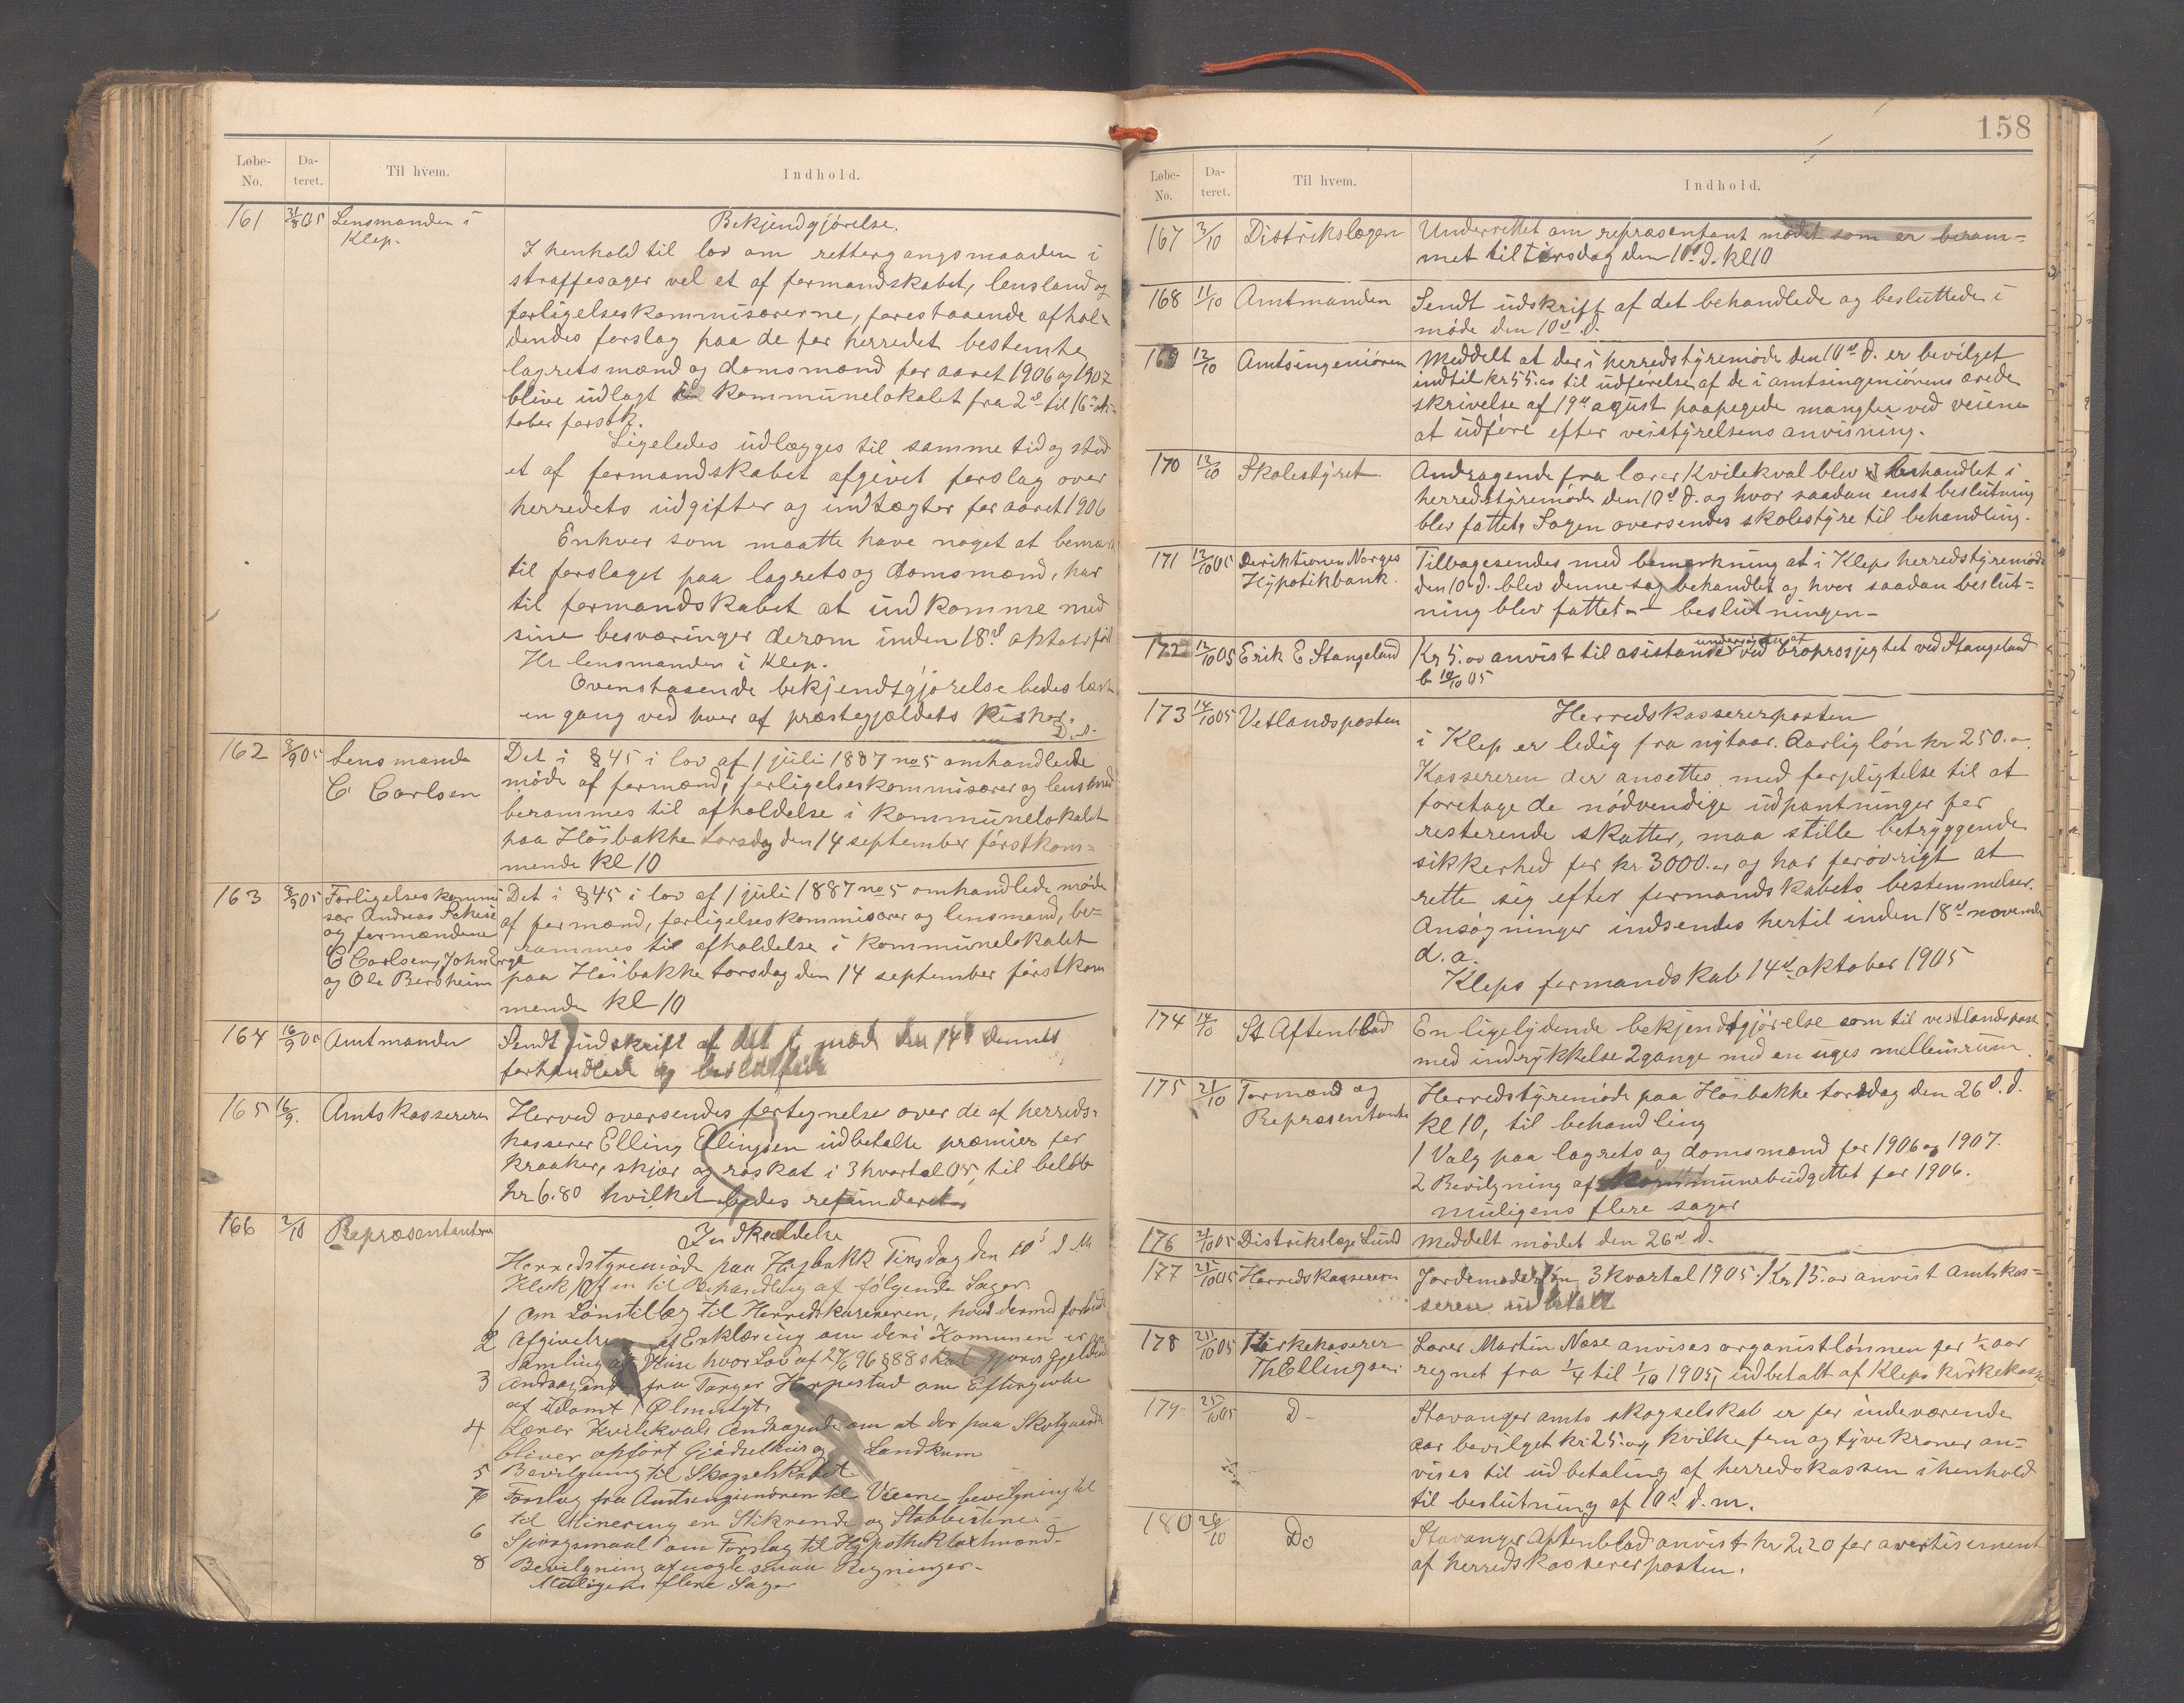 Løbe-No. Da-teret. Til hvem. Indhold.
161 31/8 05 Lensmanden i
Klep.
Bekjendgjørelse.
I henhold til lov om rettergangsmaaden i
straffesager vel et af formandskabet, lensland og
forligelseskommisærerne, forestaaende afhol-
dendes forslag paa de for herredet bestemte
lagretsmænd og domsmænd for aaret 1906 og 1907
blive udlagt i kommunelokalet fra 2d til 16de ok-
tober førstk.
Ligeledes udlægges til samme tid og sted
et af formandskabet afgivet forslag over
herredets udgifter og indtægter for aaret 1906
Enhver som maatte have noget at bemær
til forslaget paa lagrets og domsmænd, har
til formandskabet at indkomme med
sine besværinger derom inden 18d oktober
Hr lensmanden i Klep.
Ovenstaaende bekjendtgjørelse bedes læst
en gang ved hver af præstegjældets kirker.
D. s.
162 8/9 05 Lensmande
C Carlsen
Det i § 45 i lov af 1 juli 1887 no 5 omhandlede
møde af formænd, forligelseskommisærer og lensmænd
berammes til afholdelse i kommunelokalet
paa Høibakke torsdag den 14 september førstkom-
mende kl 10
163 8/9 05 Forligelseskommi
sær Andreas
og formændene
C Carlsen, John Erga
og Ole Bersheim
Det i § 45 i lov af 1 juli 1887 no 5 omhandlede møde
af formænd, forligelseskommisærer og lensmænd, be-
rammes til afholdelse i kommunelokalet
paa Høibakke torsdag den 14 september førstkom
mende kl 10
164 16/9 05 Amtmanden
Sendt udskrift af det i mødet den 14d dennes
forhandlede og besluttede
165 16/9. Amtskassereren
Herved oversendes fortegnelse over de af herreds-
kasserer Elling Elingsen udbetalte præmier for
kraaker, skjær og røskat i 3 kvartal 05, til beløb
kr 6.80 hvilket bedes refunderet.
166 2/10 Repræsentanterne
Indkaldelse
Herredstyremøde paa Høybakk Tirsdag den 10d d M
Klok 10 f m til Behandling af følgende Sager.
1 Om Lønstillæg til Herredskasereren, hvad dermed forbindt
2 Afgivelse af Erklæring om der i Komunen er
Samling af Huse hvor Lov af 27/6 96 § 88 skal gjøres gjeldend
3 Andragende fra Torger Horpestad om Eftergivelse
af idømt Ølmulgt.
4 Lærer Kvilekvals Andragende om at der paa Skolgaarden
bliver opført Gjødselhus og Landrum
5 Bevilgning til Skogselskabet
7 Forslag fra Amtsingeniøren til Veiene bevilgning til
til Minering en Stikrende og Stabbestene
6 Spørgsmaal om Forslag til Hypothektaxtmænd.
8 Bevilgning af nogle smaa Regninger.
Muligens flere Sager
158
Løbe-No. Da-teret. Til hvem. Indhold.
167 3/10 Distrikslægen
Underrettet om repræsentantmødet som er beram-
met til tirsdag den 10d d. kl 10
168 11/10 Amtmanden
Sendt udskrift af det behandlede og besluttede i
møde den 10d d.
169 12/10 Amtsingeniøren
Meddelt at der i herredstyremøde den 10d d. er bevilget
indtil kr 55.00 til udførelse af de i amtsingeniørens ærede
skrivelse af 19d agust paapegede mangler ved veiene
at udføre efter veistyrelsens anvisning.
170 12/10 Skolestyret
Andragende fra lærer Kvilekval blev behandlet i
herredstyremøde den 10d d. og hvor saadan enst beslutning
blev fattet. Sagen oversendes skolestyre til behandling.
171 12/10 05 Direktionen Norges
Hypotikbank.
Tilbagesendes med bemerkning at i Kleps herredstyremøde
den 10d d. blev denne sag behandlet og hvor saadan beslut-
ning blev fattet — beslutningen —
172 12/10 05 Erik E Stangeland
Kr 5.00 anvist til asistanse ved undersøgelse af broprosjegtet ved Stangeland
b 10/10 05
173 14/10 05 Vetlandsposten
Herredskassererposten
i Klep er ledig fra nytaar. Aarlig løn kr 250.-
Kassereren der ansettes med forpligtelse til at
foretage de nødvendige udpantninger for
resterende skatter, maa stille betryggende
sikkerhed for kr 3000.00 og har forøvrigt at
rette sig efter formandskabets bestemmelser.
Ansøgninger indsendes hertil inden 18d november
d. a.
Kleps formandskab 14d oktober 1905
174 14/10 St Aftenblad
En ligelydende bekjendtgjørelse som til vestlandspost
med indrykkelse 2 gange med en uges mellemrum.
175 21/10 Formænd og
Repræsentante
Herredstyremøde paa Høibakke torsdag den 26d. d.
kl 10, til behandling
1 Valg paa lagrets og domsmænd for 1906 og 1907.
2 Bevilgning af kommunebudgettet for 1906.
muligens flere sager
176 21/10 05 Distrikslæge Lund
Meddelt mødet den 26d d.
177 25/10 05 Herredskasseren
Jordemoderløn 3 kvartal 1905. Kr 15.00 anvist Amtskas-
serere udbetalt
178 25/10 05 Kirkekaserer
Th Ellingsen
Lærer Martin Næse anvises organistlønnen for 1/2 aar
regnet fra 1/4 til 1/10 1905, udbetalt af Kleps kirkekasse
179 25/10 05 D-
Stavanger amts skogselskab er for indeværende
aar bevilget kr 25.00 hvilke fem og tyve kroner an-
vises til udbetaling af herredskassen i henhold
til beslutning af 10d d. m.
180 26/10 Do
Stavanger Aftenblad anvist kr 2,20 for avertisement
af herredskassererposten.